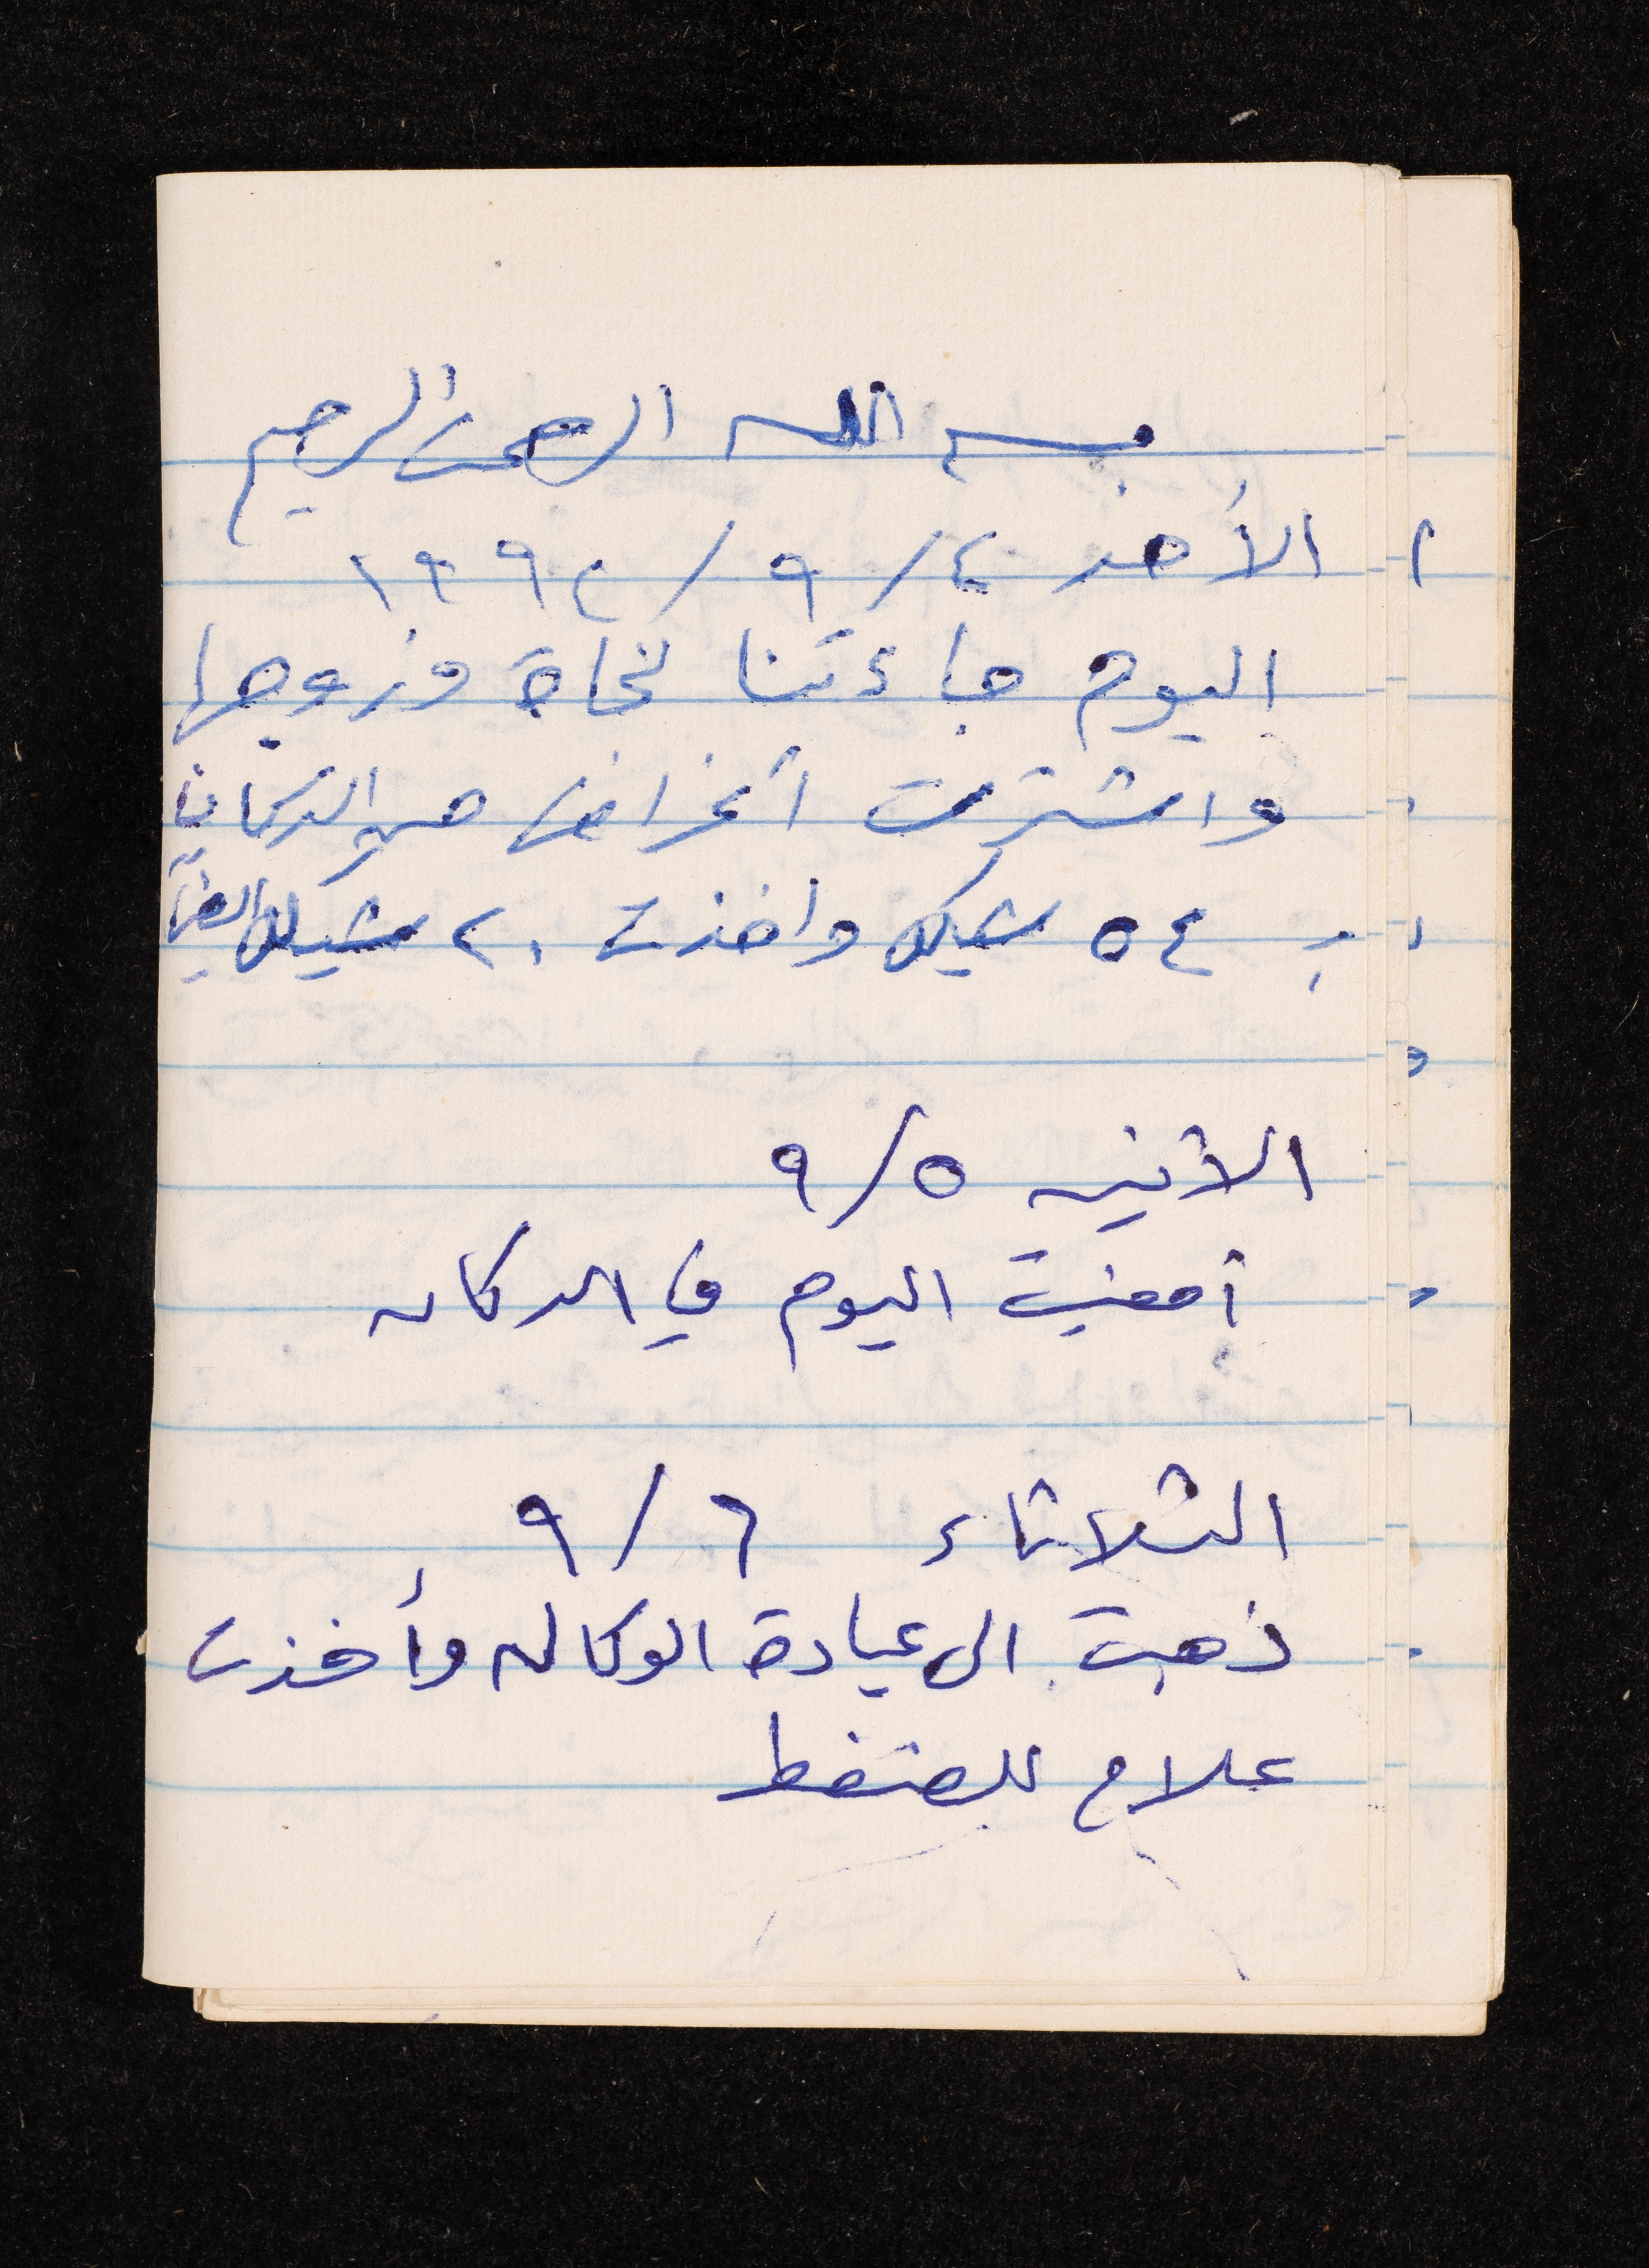 بسم الله الرحمن الرحيم
الأحد ٤/٩/١٩٩٤
اليوم جاءتنا نجاة وزوجها
واشترت أغراض من الدكان
بـ ٥٤ شيكل واخذت ٢٠ شيكل ايضاً
الاثنين ٥/٩
أمضيت اليوم في الدكان
الثلاثاء ٦/٩
ذهبت الى عيادة الوكاله وأخذت
علاج للضغط